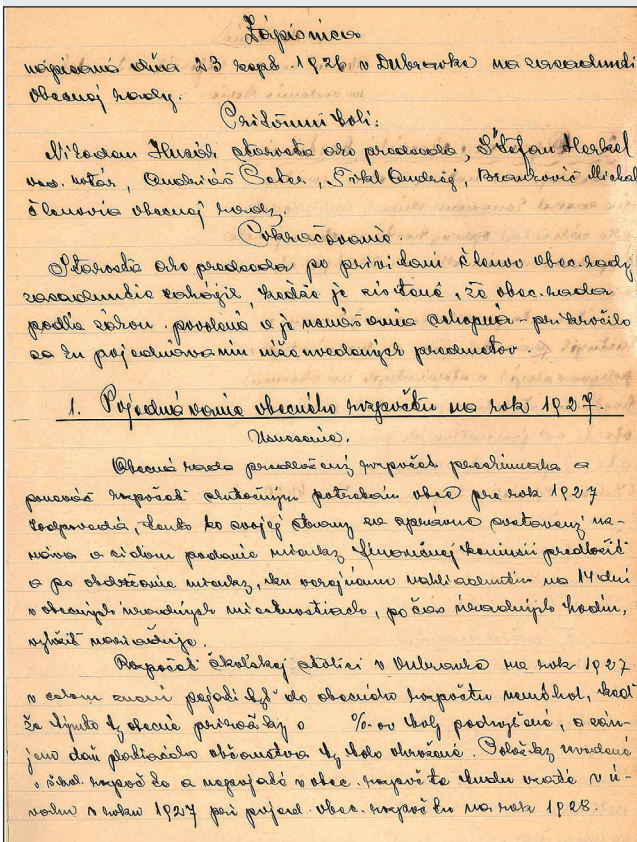 Zápisnica
napísaná dňa 23 sept. 1926 v Dubravke na zasadnutí
obecnej rady.
Prítomní boli:
Nikodam Husár starosta ako predseda, Štefan Herkel
ved. notár, Andriáš Peter, Fikl Andrej, Brancovič Michal
členovia obecnej rady.
Pokračovanie.
Starosta ako predseda po privítam členov obec. rady
zasadnutie zahájil, kedže je zistené, že obec. rada
podľa zákon. povolená a je uznášania schopná – prikročilo
sa ku pojednávaniu niže uvedených predmetov.
1. Pojednávanie obecného rozpočtu na rok 1927.
Usnesenie.
Obecná rada predložený rozpočet preskúmala a
ponevač rozpočet skutočným potrebám obce pre rok 1927
zodpovedá, tento zo svojej strany za správne zostavený
a cieľom podania mienky finančnej komisii predložiť
a po obdržanie mienky, ku verejnému nahliadnutiu na 14 dní
v obecných úradných miestnostiach, počas úradných hodín,
vyložiť nariaďuje.
Rozpočet školskej stolici v Dubravke na rok 1927
v celom znení pojatý byť do obecného rozpočtu nemôhol, keď
že týmto by obecné prirážky o % ov boly podvyšené, a
daň platiaceho občanstva by bolo ohrožené. Položky uvedené
v škol. rozpočte a nepojaté v obec. rozpočte budu vzaté v ú-
vahu v roku 1927 pri pojed. obec. rozpočtu na rok 1928.